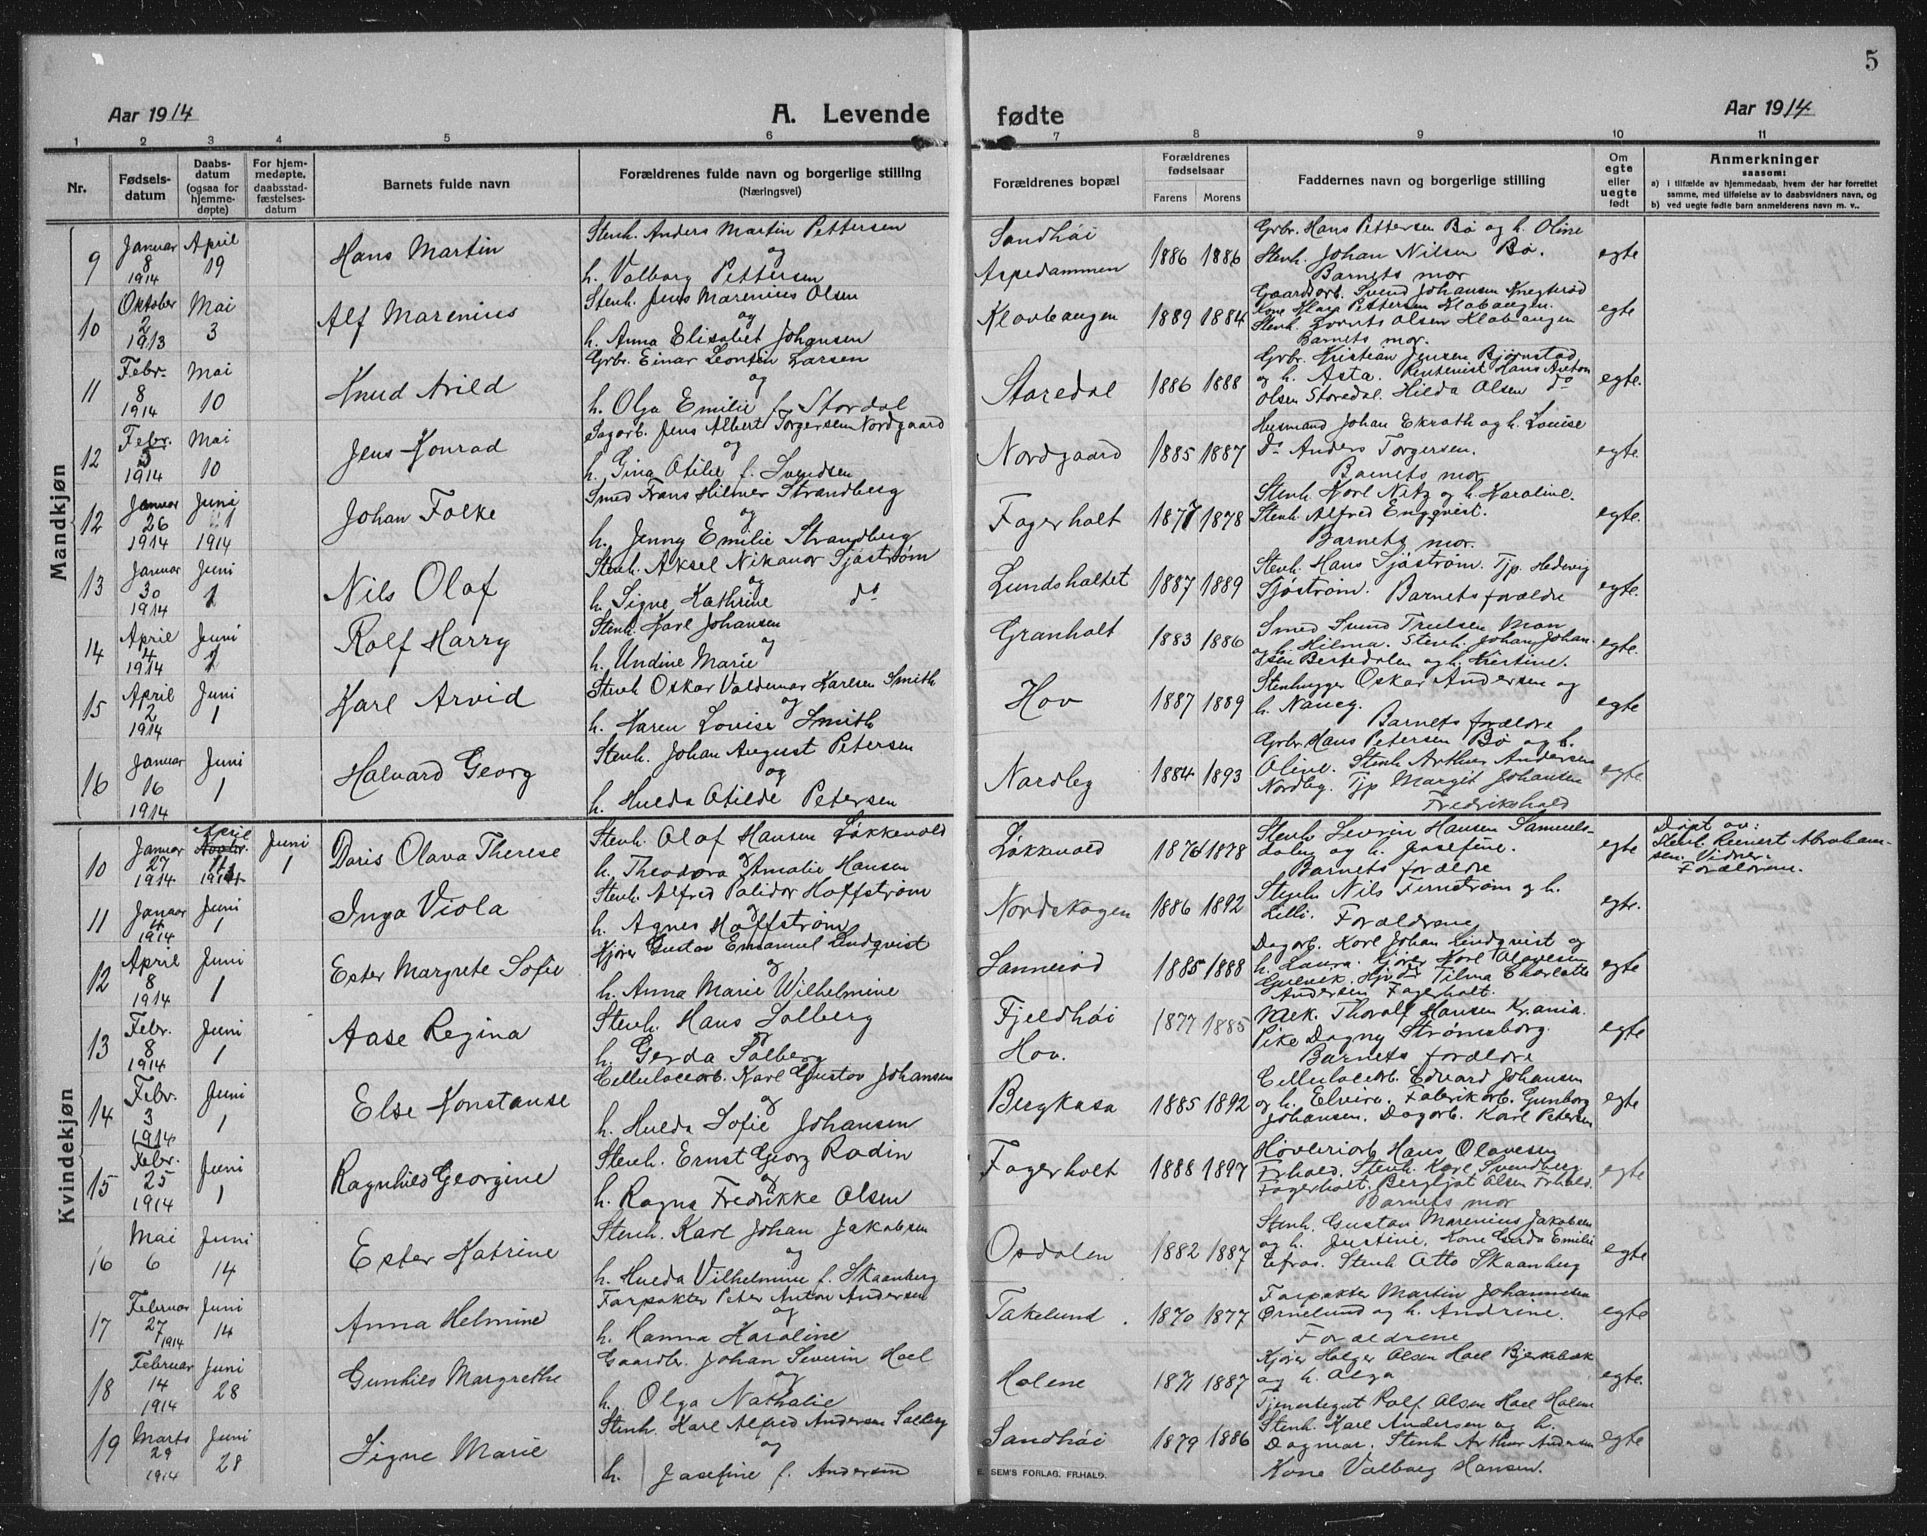 5
Aar 1914
A. Levende fødte
Aar 1914
1 2 3 4 5 6 7 8 9 10 11
Nr.
Fødsels-
datum
Daabs-
datum
(ogsaa for
hjemme-
døpte)
For hjem-
medøpte,
daabsstad-
fæstelses-
datum
Barnets fulde navn
Forældrenes fulde navn og borgerlige stilling
(Næringsvei)
Forældrenes bopæl
Forældrenes
fødselsaar
Farens Morens
Faddernes navn og borgerlige stilling
Om
egte
eller
uegte
født
Anmerkninger
saasom:
a) i tilfælde av hjemmedaab, hvem der har forrettet
samme, med tilføielse av to daabsvidners navn, og
b) ved uegte fødte barn anmelderens navn m. v..
Mandkjøn
9
Januar
8
1914
April
19
Hans Martin
Stenh. Anders Martin Pettersen
og
h. Valborg Pettersen
Sandhøi
Aspedammen
1886 1886
Grbr. Hans Pettersen Bø og h. Oline
Stenh. Johan Nilsen Bø.
Barnets mor
egte
10
Oktober
2
1913
Mai
3
Alf Marenius
Stenh. Jens Marenius Olsen
og
h. Anna Elisabet Johansen
Klovbaugen
1889 1884
Gaardarb. Svend Johansen
Kone Pettersen Klobaugen.
Stenh. Olsen Klobaugen
Barnets mor.
egte
11
Febr.
8
1914
Mai
10
Knud Arild
Grbr. Einar Leontin Larsen
og
h. Olga Emilie f. Stordal
Staredal
1886 1888
Grbr. Kristian Jensen Bjørnstad
og h. Asta. Rentenist Hans Anton
Olsen Storedal. Hilda Olsen do
egte.
12
Febr.
5
1914
Mai
10
Jens Konrad
Sagarb. Jens Albert Torgersen Nordgaard
og
h. Gina Otilie f. Svendsen
Nordgaard
1885 1887
Husmand Johan Ekrath og h. Louise
do Anders Torgersen.
Barnets mor
egte.
12
Januar
26
1914
Juni
1
1914
Johan Folke
Smed Frans Hilmer Strandberg
og
h. Jenny Emilie Strandberg
Fagerholt
1877 1878
Stenh. Karl Nitz og h. Karoline.
Stenh. Alfred Engqvist.
Barnets mor.
egte.
13
Januar
30
1914
Juni
1
Nils Olaf
Stenh. Aksel Nikanor Sjøstrøm
og
h. Signe Kathrine do
Lundsholtet
1887 1889
Stenh. Hans Sjøstrøm. Tjp. Hedevig
Sjøstrøm. Barnets forældre
egte.
14
April
4
1914
Juni
1
Rolf Harry
Stenh. Karl Johansen
og
h. Undine Marie
Granholt
1883 1886
Smed Svend Trulsen Mon
og h. Hilma. Stenh. Johan Johan-
sen Berfedalen og h. Kirstine.
egte.
15
April
2
1914
Juni
1
Karl Arvid
Stenh Oskar Valdemar Karlsen Smith
og
h. Karen Lovise Smith
Hov
1887 1889
Stenhugger Oskar Andersen og
h. Nancy.
Barnets forældre
egte
16
Januar
16
1914
Juni
1
Halvard Georg
Stenh. Johan August Petersen
og
h. Hulda Otilde Petersen
Nordby
1884 1893
Grbr. Hans Petersen Bø og h.
Oline. Stenh Arthur Andersen
Nordby. Tjp Margit Johansen
Fredrikshald
egte.
Kvindekjøn
10
Januar
27
1914
April
14
1914
Juni
1
Doris Olava Therese
Stenh. Olaf Hansen Løkkevold
og
h. Theodora Amalie Hansen
Løkkevold
1876 1878
Stenh. Severin Hansen Samuels-
dalen og h. Josefine.
Barnets forældre
egte
Døpt av:
Stenh. Reinert Abraham-
sen. Vidner:
Forældrene.
11
Januar
4
1914
Juni
1
Inga Viola
Stenh. Alfred Polidor Hoffstrøm
og
h. Agnes Hoffstrøm
Nordskogen
1886 1892
Stenh Nils Fernstrøm og h.
Lilli. Forældrene
egte.
12
April
8
1914
Juni
1
Ester Margrete Sofie
Kjører Gustav Emanuel Lindqvist
og
h. Anna Marie Wilhelmine
Lannerød
1885 1888
Dagarb. Karl Johan Lindqvist og
h. Laura. Kjører Karl Olavesen
Gulevik. Tilma Charlotte
Andersen Fagerholt.
egte
13
Febr.
8
1914
Juni
1
Aase Regina
Stenh. Hans Solberg
og
h. Gerda Solberg
Fjeldhøi
Hov.
1877 1885
Mek. Thoralf Hansen Kr.ania.
Pike Dagny Strømsborg.
Barnets forældre
egte
14
Febr.
3
1914
Juni
1
Else Konstanse
Cellulosearb. Karl Gustav Johansen
og
h. Hulda Sofie Johansen
Bergkasa
1885 1892
Cellulosearb. Edvard Johansen
og h. Elvira. Fabrikarb. Gunborg
Johansen. Dagarb. Karl Petersen
egte
15
Febr.
25
1914
Juni
1
Ragnhild Georgine
Stenh. Ernst Georg Rodin
og
h. Ragna Fredrikke Olsen
Fagerholt
1888 1897
Høveliarb Hans Olavesen
Frhald. Stenh. Karl Svendberg
Fagerholt. Bergljot Olsen Frhald.
Barnets mor
egte
16
Mai
6
Juni
14
Ester Katrine
Stenh. Karl Johan Jakobsen
og
h. Hulda Vilhelmine f. Skaanberg
Opdalen
1882 1887
Stenh. Gustav Marenius Jakobsen
og h. Justine. Kone Gerda Emilie
Stenh Otto Skaanberg
egte
17
Februar
27
1914
Juni
14
Anna Helmine
Forpakter Peter Anton Andersen
og
h. Hanna Karoline
Takelund.
1870 1877
Forpakter Martin Johannesen
Ørnelund og h. Andrine.
Forældrene
egte
18
Februar
14
1914
Juni
28
Gunhild Margrethe
Gaardbr. Johan Severin Hoel
og
h. Olga Nathalie
Holene
1871 1887
Kjører Holger Olsen Hoel Bjerkebæk
og h. Olga
Tjenestegut Rolf Olsen Hoel Holene
egte.
19
Marts
29
1914
Juni
28
Signe Marie
Stenh. Karl Alfred Andersen Solberg
og
h. Josefine f. Andersen
Sandhøi
1879 1886
Stenh. Karl Andersen og h.
Dagmar. Stenh Arthur Andersen
Kone Valborg Hansen.
egte
E. SEM'S FORLAG, FR.HALD.